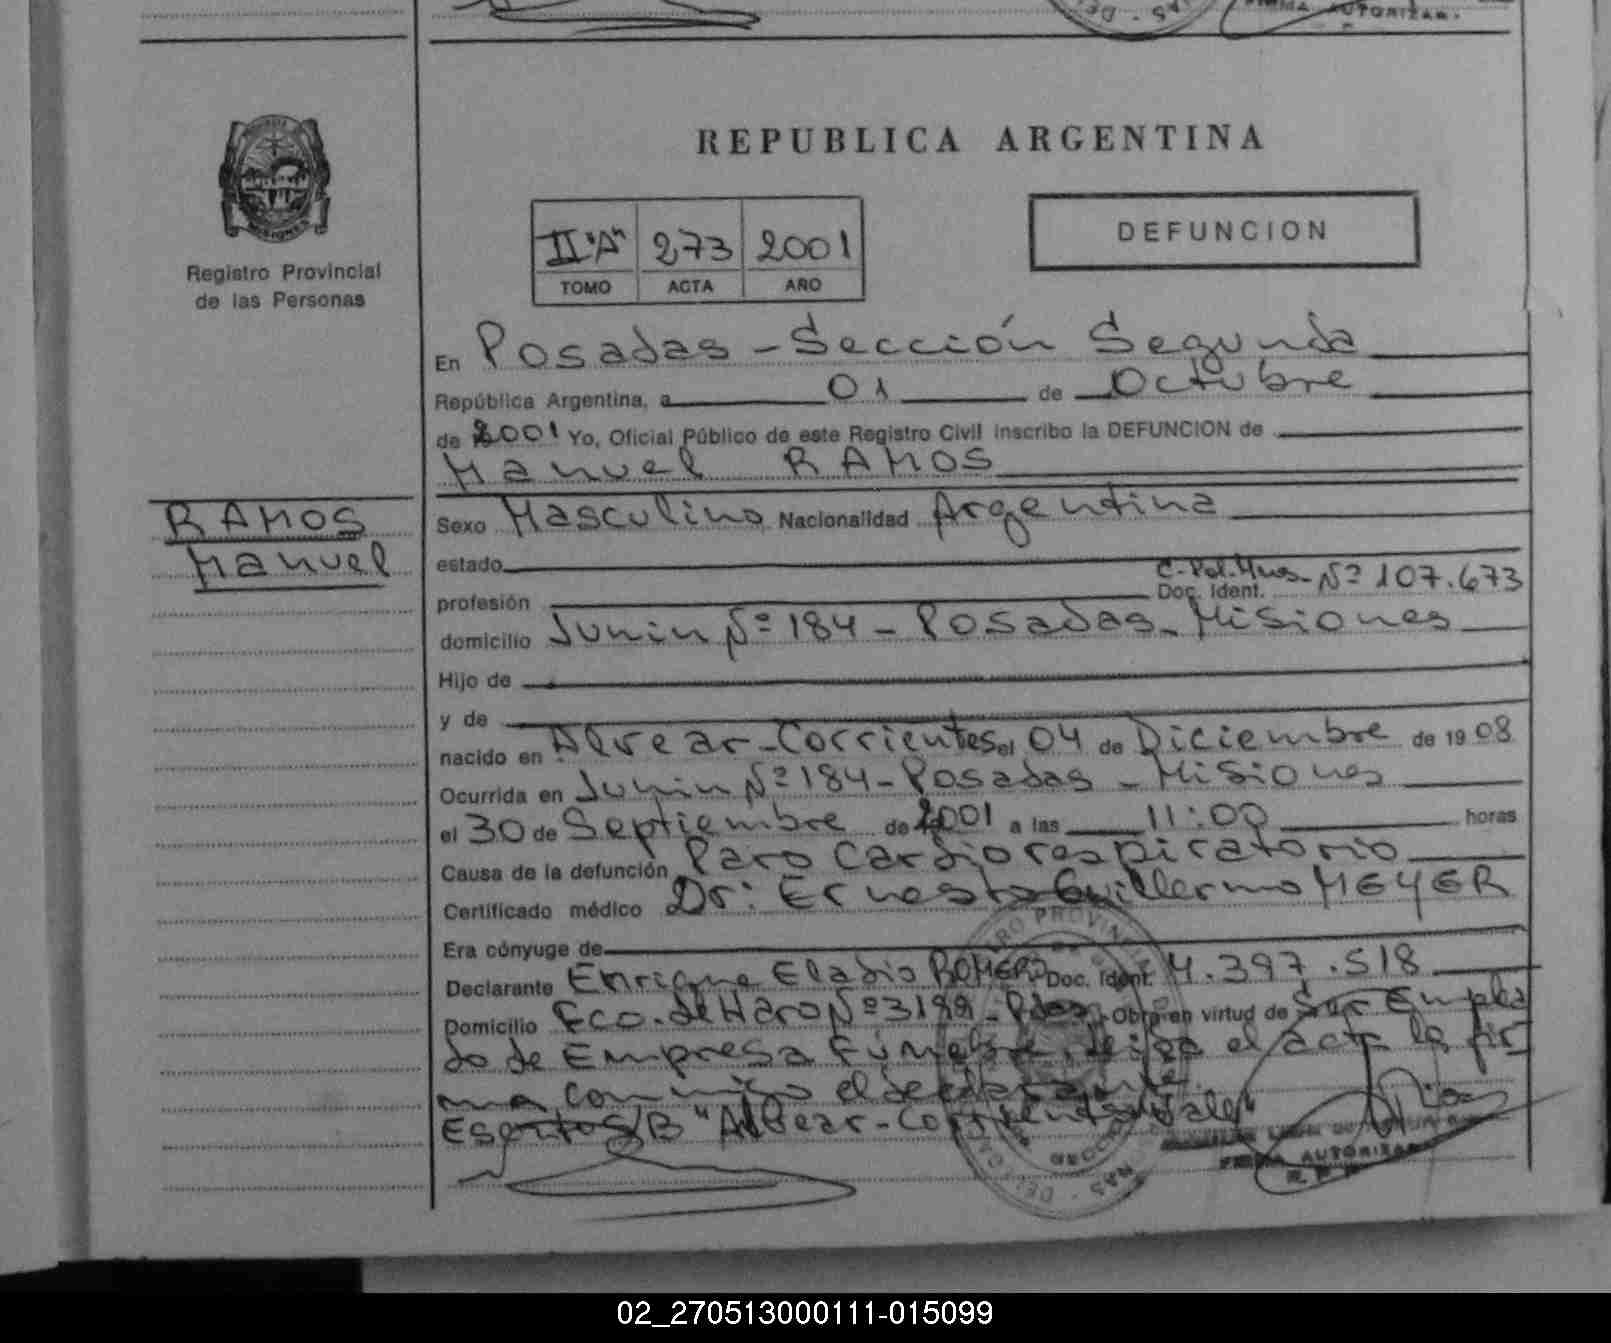 FIRMA AUTORIZAD.
REPUBLICA ARGENTINA
II "A" 273 2001
TOMO ACTA AÑO
DEFUNCION
MISIONES
Registro Provincial
de las Personas
RAMOS
Manuel
En Posadas - Sección Segunda
República Argentina, a 01 de Octubre
de 2001 Yo, Oficial Público de este Registro Civil inscribo la DEFUNCION de
Manuel RAMOS
Sexo Masculino Nacionalidad Argentina
estado
profesión C. Pol. Mnes. Nº 107.673
Doc. Ident.
domicilio Junin Nº 184 - Posadas - Misiones
Hijo de
y de
nacido en Alvear - Corrientes el 04 de Diciembre de 19 08
Ocurrida en Junin Nº 184 - Posadas - Misiones
el 30 de Septiembre de 2001 a las 11:00 horas
Causa de la defunción Paro Cardiorespiratorio
Certificado médico Dr: Ernesto Guillermo MEYER
Era cónyuge de
Declarante Enrique Eladio ROMERO Doc. Ident. 4.397.518
Domicilio Fco. de Haro Nº 3199 - Pdas. Obra en virtud de Ser Emplea
do de Empresa Fúnebre, leida el acta la fir
ma conmigo el declarante
Escritos S/B "Alvear - Corrientes" Vale
FIRMA AUTORIZADA
R.P.P.
02_270513000111-015099